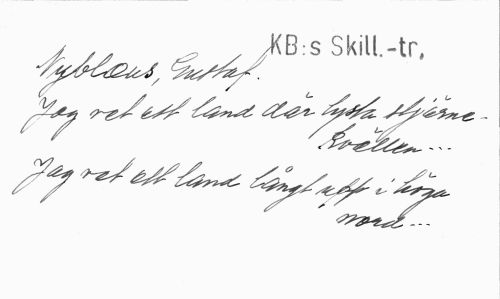 KB:s Skill.-tr.
Nyblæus, Gustaf.
Jag vet ett land där lysta stjärne-
kvällen...
Jag vet ett land långt upp i höga
nord...